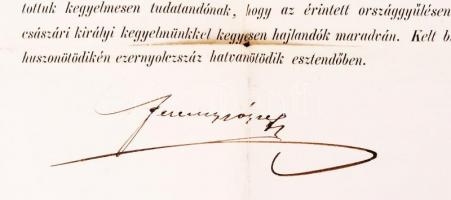 tottuk kegyelmesen tudatandónak, hogy az érintett országgyűlésen
császári királyi kegyelmünkkel kegyesen hajlandók maradván. Kelt b
huszonötödikén ezernyolczszáz hatvanötödik esztendőben.
Ferencz József